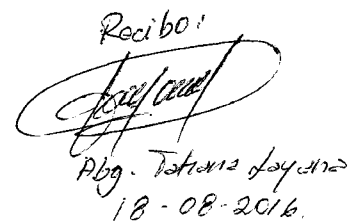 Recibo:
Abg. Tatiana Layana
18-08-2016.